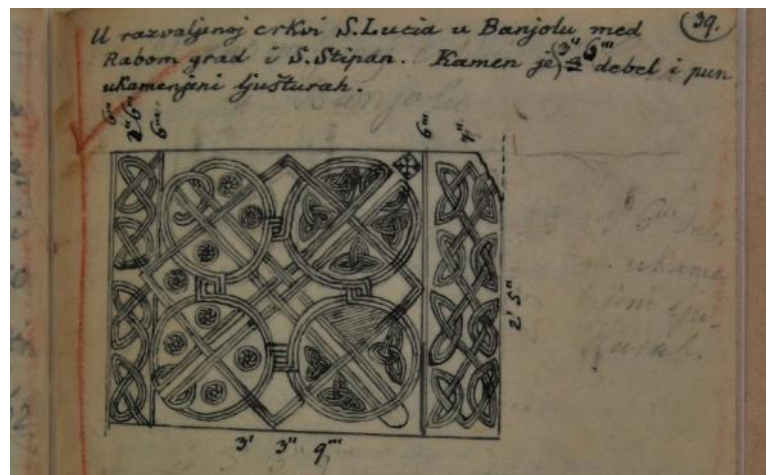 39.
U razvaljenoj crkvi S. Lucia u Banjolu med
Rabom grad i S. Stipan. Kamen je 3" 6"' debel i pun
ukamenjeni ljušturah.
6"' 2"6"' 6"' 6"' 7"
2' 5"
3' 3" 9"'
6"' deb.
ukame
ljuš-
turah.